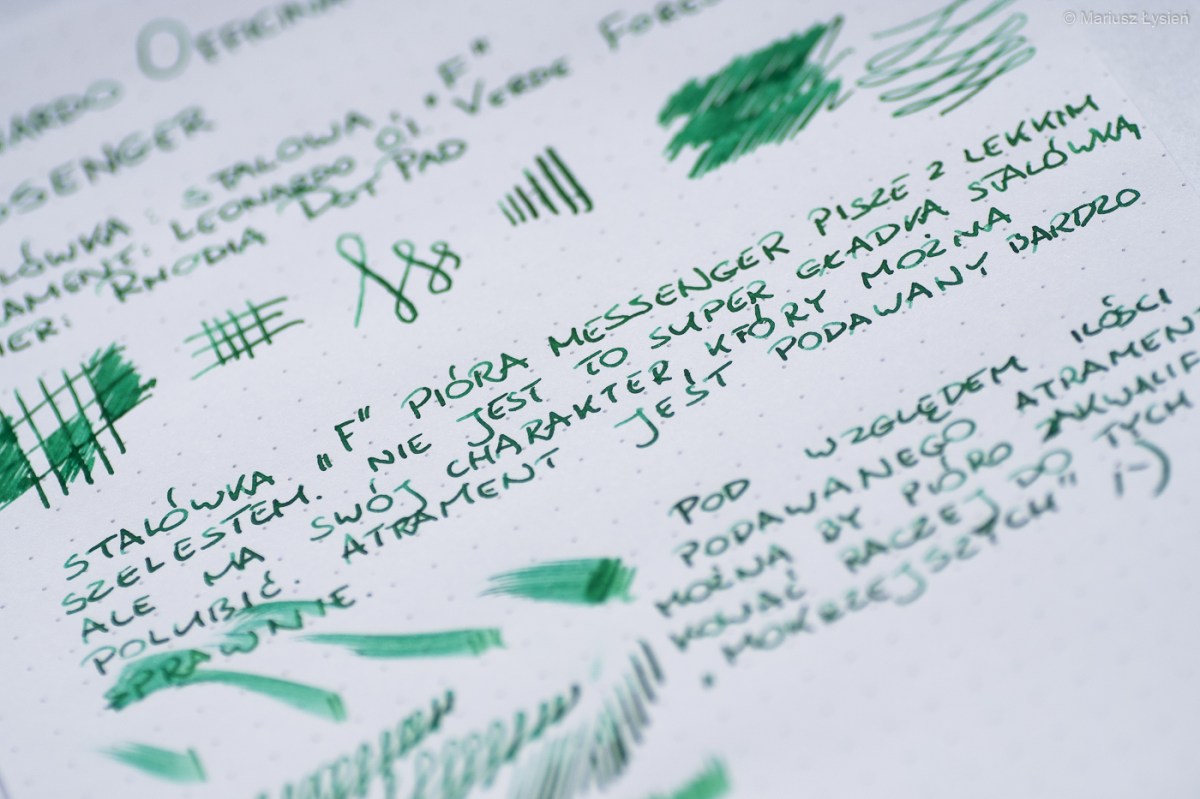 © Mariusz Łysień
ARDO OFFICINA
SSENGER
STALOWA "F"
LÓWKA:
AMENT: LEONARDO OI. VERDE
IER: RHODIA DOT PAD
STALÓWKA „F" PIÓRA MESSENGER PISZE Z LEKKIM
SZELESTEM. NIE JEST TO SUPER GŁADKA STALÓWKA,
ALE MA SWÓJ CHARAKTER, KTÓRY MOŻNA
POLUBIĆ. ATRAMENT JEST PODAWANY BARDZO
SPRAWNIE.
POD WZGLĘDEM ILOŚCI
PODAWANEGO ATRAMEN
MOŻNA BY PIÓRO ZAKWALIF
KOWAĆ RACZEJ DO TYCH
„MOKRZEJSZYCH" ;-)